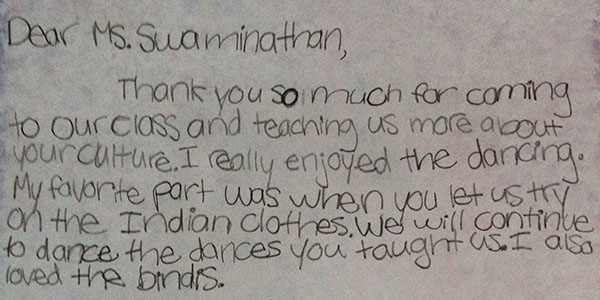 Dear Ms. Swaminathan,
Thank you so much for coming
to our class and teaching us more about
your culture. I really enjoyed the dancing.
My favorite part was when you let us try
on the Indian clothes. We will continue
to dance the dances you taught us. I also
loved the bindis.